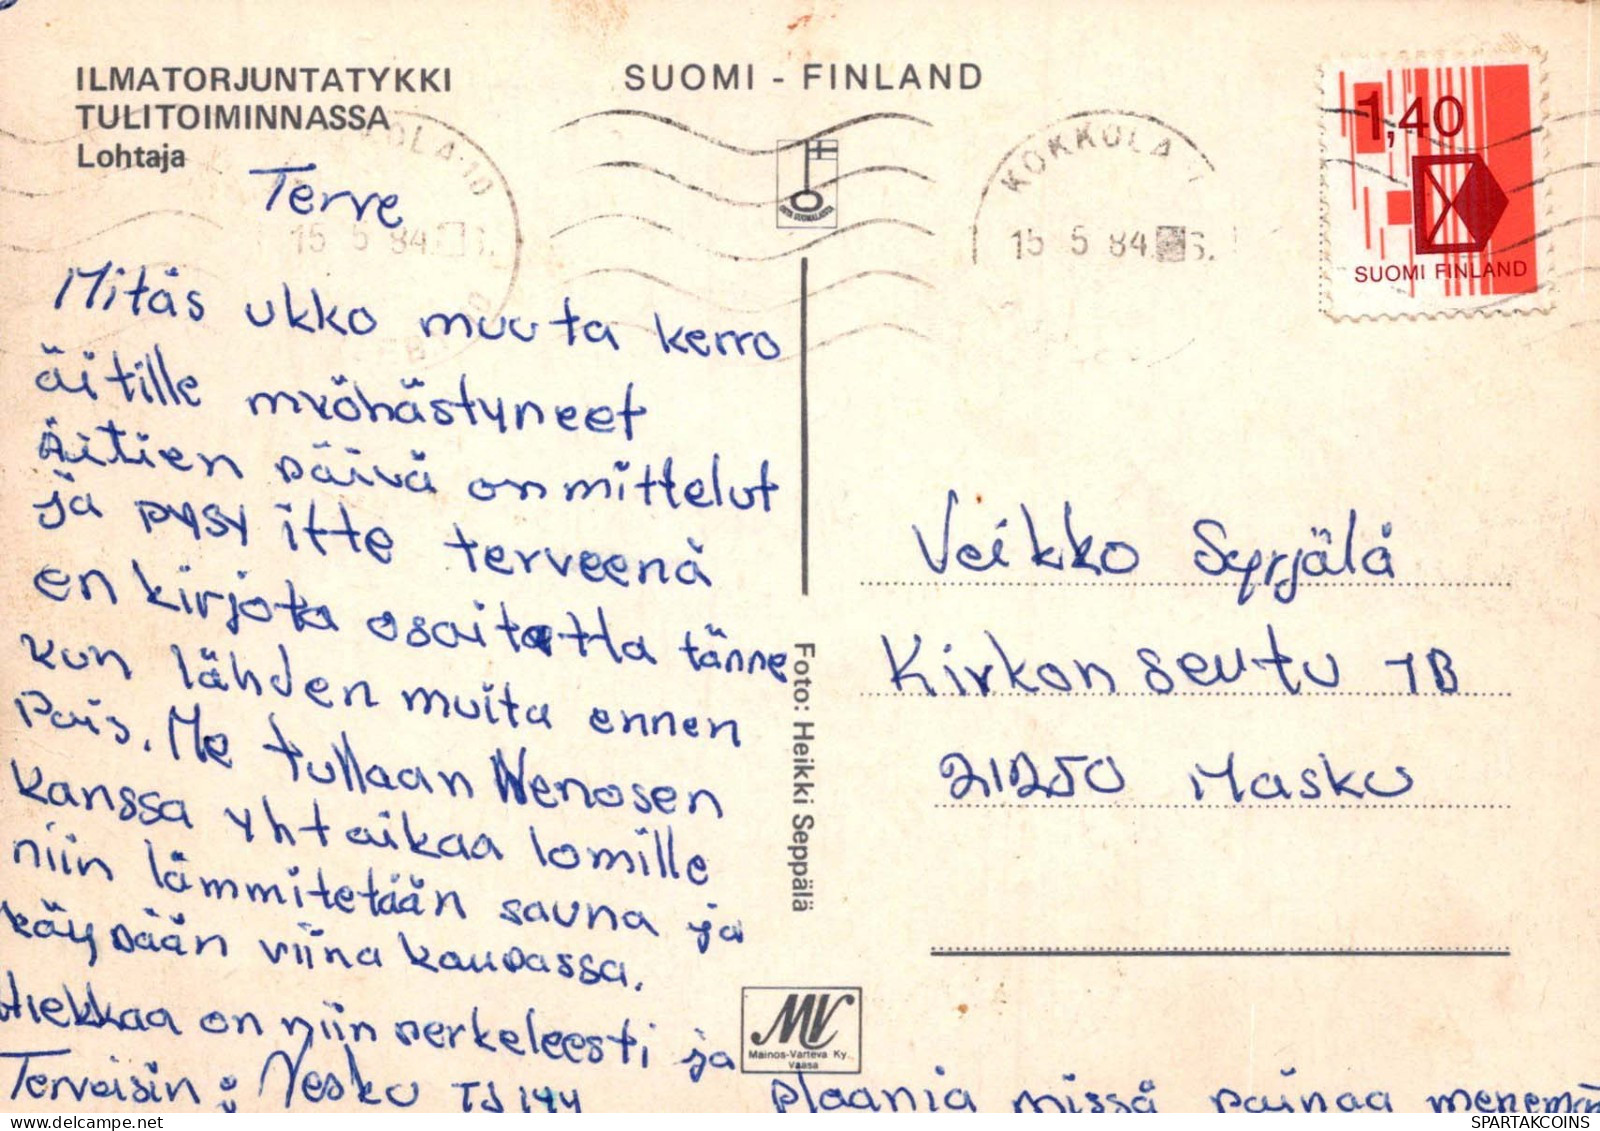 ILMATORJUNTATYKKI
TULITOIMINNASSA
Lohtaja
SUOMI - FINLAND
1,40
SUOMI FINLAND
KOKKOLA
15 5 84
KOKKOLA 10
15 5 84
Terve
Mitäs ukko muuta kerro
äitille myöhästyneet
Äitien päivä onmittelut
ja pysy itte terveenä
en kirjota osaitetta tänne
kun lähden muita ennen
Pois. Me tullaan Wenosen
kanssa yhtaikaa lomille
niin lämmitetään sauna ja
käypään viina kaupassa.
Hiekkaa on niin perkeleesti ja
Terveisin: Vesku TJ 144
plaania missä painaa menemä
Veikko Syrjälä
Kirkonseutu 1B
21250 Masku
Foto: Heikki Seppälä
MV
Mainos-Varteva Ky.
Vaasa
SPARTAKCOINS